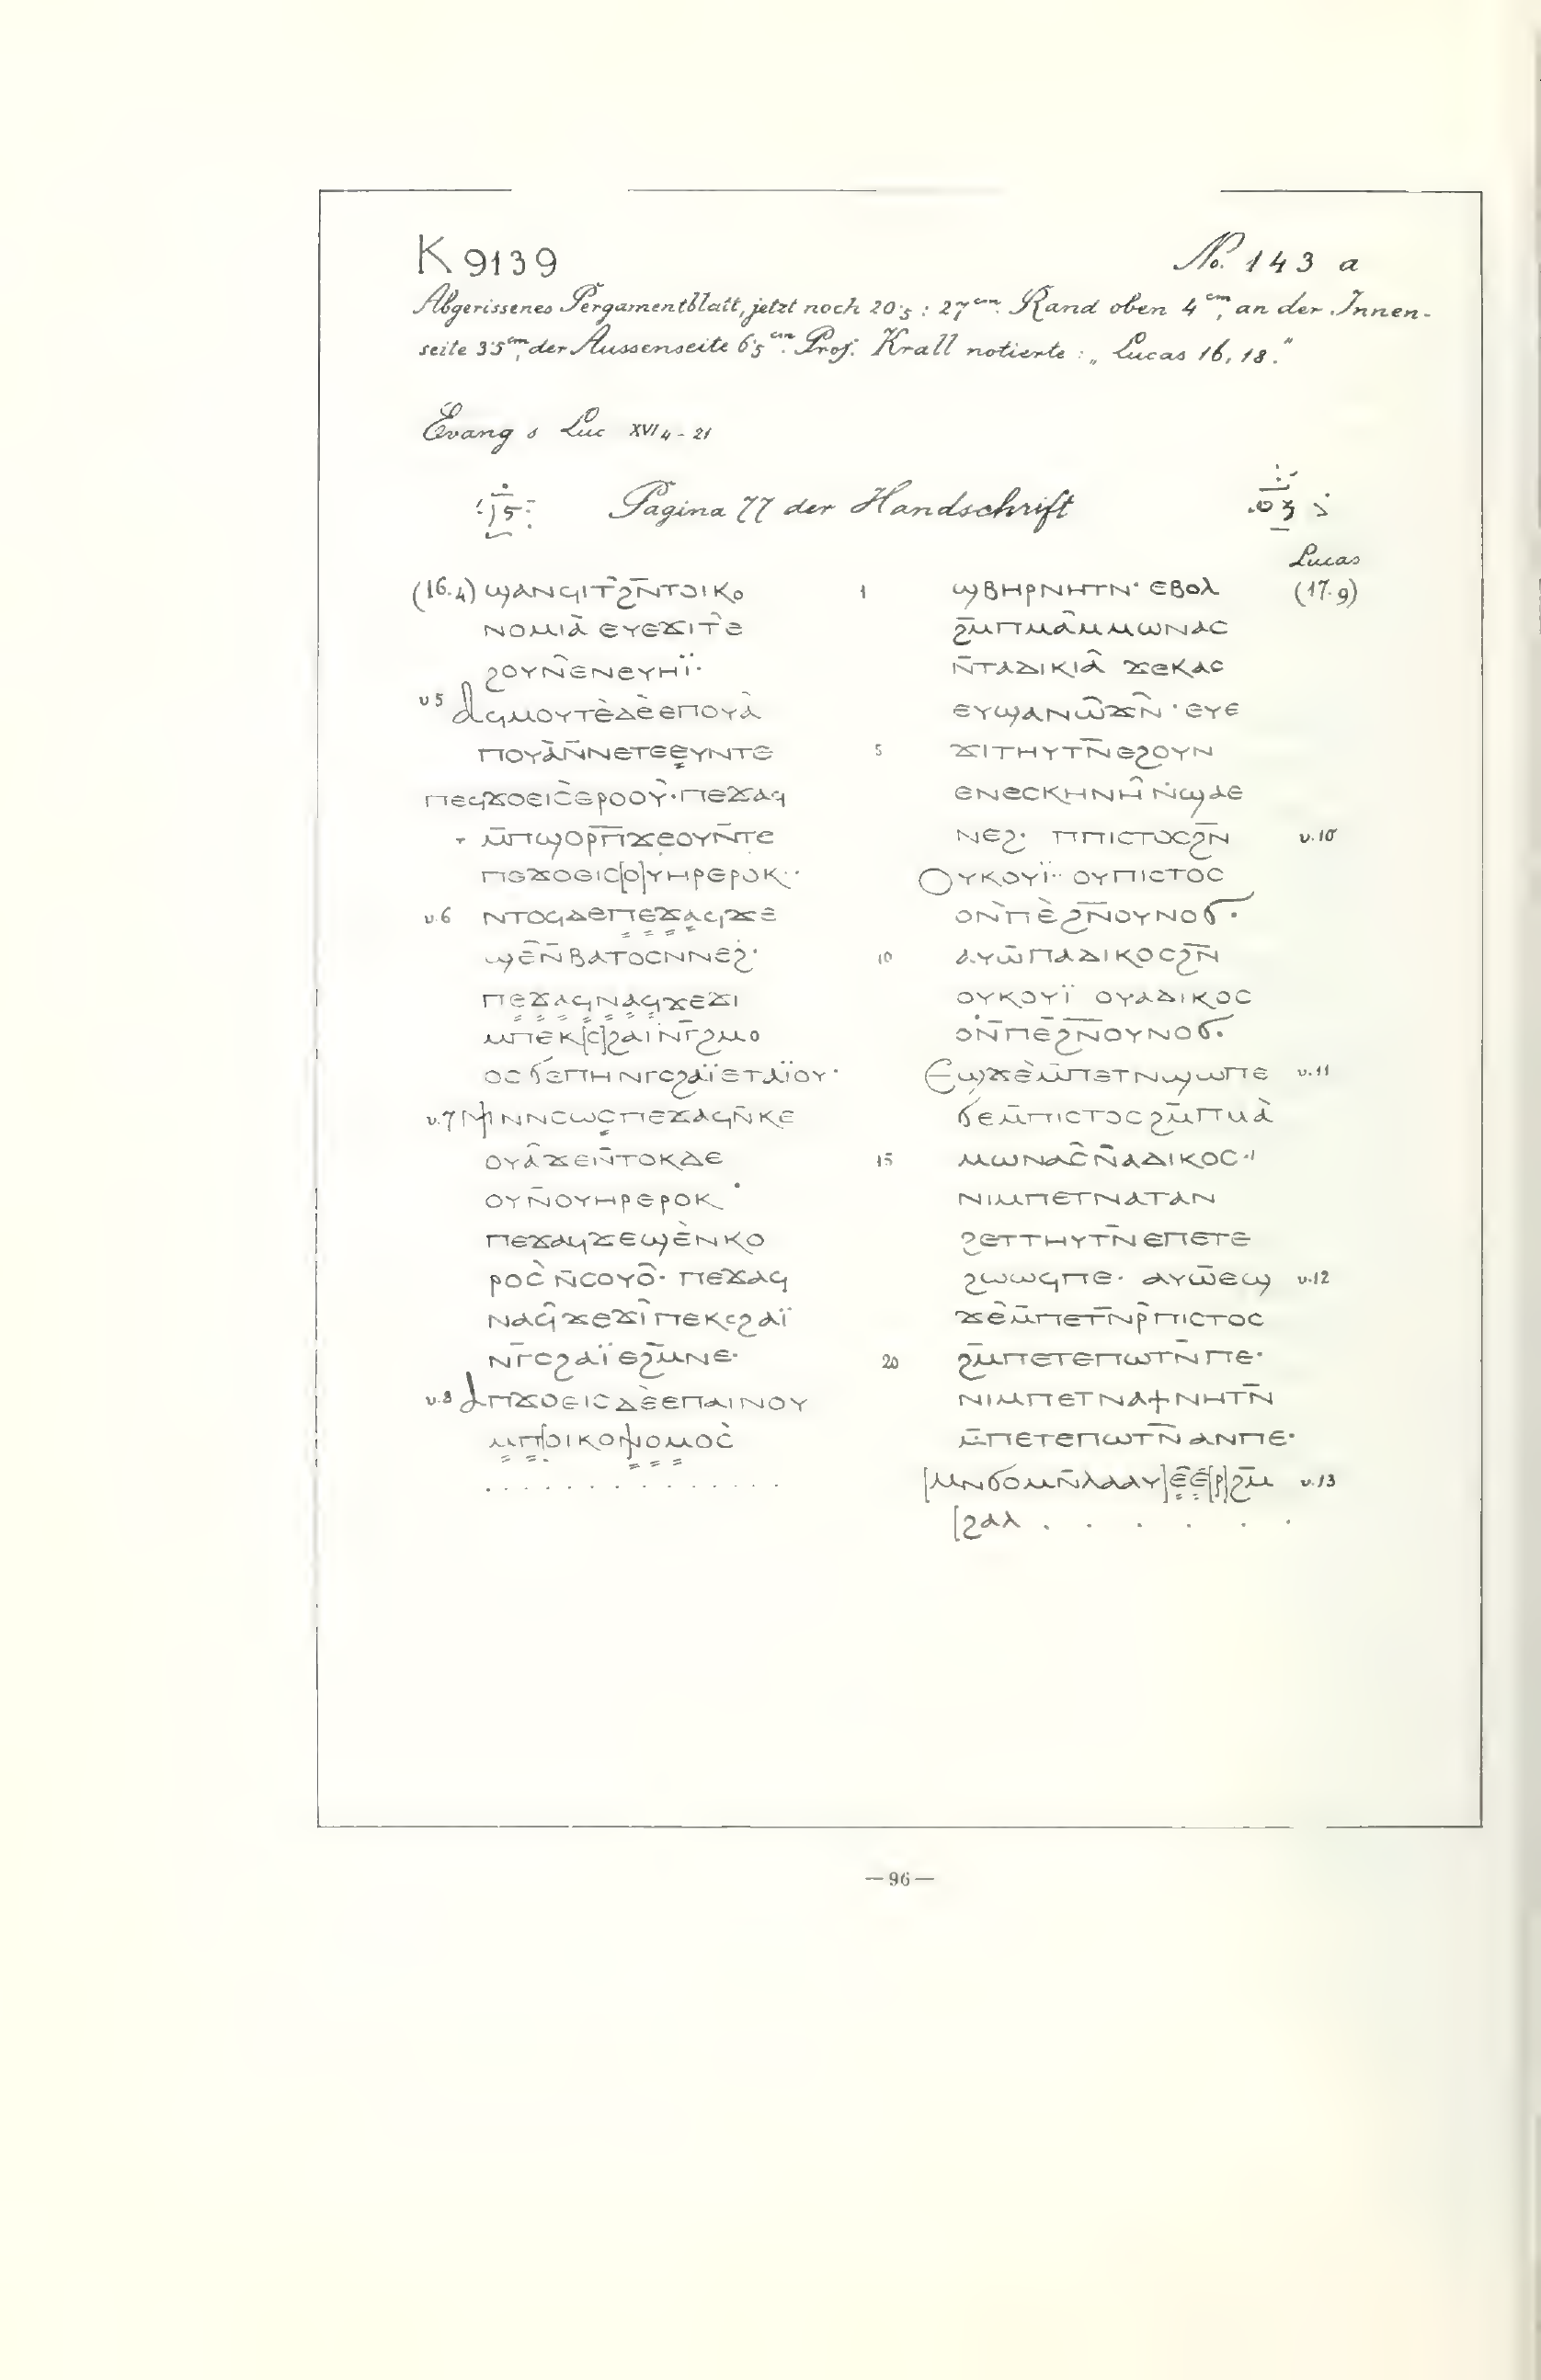 K 9139 No. 143 a
Abgerissenes Pergamentblatt, jetzt noch 20·5 : 27 cm. Rand oben 4 cm, an der Innen-
seite 3·5 cm, der Aussenseite 6·5 cm. Prof. Krall notierte: „Lucas 16, 18."
Evang s Luc XVI 4-21
Pagina 77 der Handschrift
Lucas
(16.4) ϣⲁⲛϥⲓⲧ̄ϩ̄ⲛⲧⲟⲓⲕⲟ
ⲛⲟⲙⲓⲁ̀ ⲉⲩⲉϫⲓⲧ̀ⲉ
ϩⲟⲩⲛ̄ⲉⲛⲉⲩⲏⲓ̈·
v 5 ⲁϥⲙⲟⲩⲧⲉ̀ⲇⲉ̀ⲉⲡⲟⲩⲁ̀
ⲡⲟⲩⲁ̀ⲛ̄ⲛⲉⲧⲉⲉⲩⲛⲧⲉ
ⲡⲉϥϫⲟⲉⲓⲥ̀ⲉⲣⲟⲟⲩ̀·ⲡⲉϫⲁϥ
ⲙ̄ⲡϣⲟⲣⲡ̄ϫⲉⲟⲩⲛ̄ⲧⲉ
ⲡⲁϫⲟⲉⲓⲥ[ⲟ]ⲩⲏⲣⲉⲣⲟⲕ··
v.6 ⲛⲧⲟϥⲇⲉⲡⲉϫⲁϥϫⲉ̄
ϣⲉ̄ⲛ̄ⲃⲁⲧⲟⲥⲛⲛⲉϩ̇·
ⲡⲉϫⲁϥⲛⲁϥϫⲉϫⲓ
ⲙⲡⲉⲕ[ⲥ]ϩⲁⲓ̈ⲛ̄ⲅϩⲙⲟ
ⲟⲥ ϭⲉⲡⲏ ⲛⲅⲥϩⲁⲓ̈ⲉⲧⲁⲓ̈ⲟⲩ·
v.7 ⲙⲛ̄ⲛⲥⲱⲥⲡⲉϫⲁϥⲛ̄ⲕⲉ
ⲟⲩⲁ̂ϫⲉⲛ̄ⲧⲟⲕⲇⲉ
ⲟⲩⲛ̄ⲟⲩⲏⲣⲉⲣⲟⲕ·
ⲡⲉϫⲁϥϫⲉϣⲉ̀ⲛⲕⲟ
ⲣⲟⲥ̀ ⲛ̄ⲥⲟⲩⲟ̂· ⲡⲉϫⲁϥ
ⲛⲁϥ̂ϫⲉϫⲓ̂ⲡⲉⲕⲥϩⲁⲓ̈
ⲛ̄ⲅⲥϩⲁⲓ̈ ⲉϩ̄ⲙⲛⲉ·
v.8 ⲁⲡϫⲟⲉⲓⲥⲇⲉ̀ⲉⲡⲁⲓⲛⲟⲩ
ⲙⲡ[ⲟⲓⲕⲟⲛ]ⲟⲙⲟⲥ̀
. . . . . . . . . . . . .
1 ϣⲃⲏⲣⲛⲏⲧⲛ· ⲉⲃⲟⲗ (17.9)
ϩ̄ⲙⲡⲙⲁ̂ⲙⲙⲱⲛⲁⲥ
ⲛ̄ⲧⲁⲇⲓⲕⲓⲁ̂ ϫⲉⲕⲁⲥ
ⲉⲩϣⲁⲛⲱ̂ϫⲛ̂·ⲉⲩⲉ
5 ϫⲓⲧⲏⲩⲧⲛ̄ⲉϩⲟⲩⲛ
ⲉⲛⲉⲥⲕⲏⲛⲏ̂ ⲛ̇ϣⲁⲉ
ⲛⲉϩ· ⲡⲡⲓⲥⲧⲟⲥϩ̄ⲛ v.10
ⲟⲩⲕⲟⲩⲓ̈·· ⲟⲩⲡⲓⲥⲧⲟⲥ
ⲟⲛ̀ⲡⲉ̀ϩ̄ⲛ̄ⲟⲩⲛⲟϭ·
10 ⲁⲩⲱ̄ⲡⲁⲇⲓⲕⲟⲥϩ̄ⲛ
ⲟⲩⲕⲟⲩⲓ̈ ⲟⲩⲁⲇⲓⲕⲟⲥ
ⲟⲛ̄ⲡⲉ̄ϩ̄ⲛ̄ⲟⲩⲛⲟϭ·
ⲉϣϫⲉ̀ⲙ̄ⲡⲉⲧⲛϣⲱⲡⲉ v.11
ϭⲉⲙ̄ⲡⲓⲥⲧⲟⲥϩ̄ⲙⲡⲙⲁ̀
15 ⲙⲱⲛⲁⲥ̂ⲛ̄ⲁⲇⲓⲕⲟⲥ·
ⲛⲓⲙⲡⲉⲧⲛⲁⲧⲁⲛ
ϩⲉⲧⲧⲏⲩⲧⲛ̄ⲉⲡⲉⲧⲉ
ϩⲱⲱϥⲡⲉ· ⲁⲩⲱ̄ⲉϣ v.12
ϫⲉ̀ⲙ̄ⲡⲉⲧⲛ̄ⲣ̂ⲡⲓⲥⲧⲟⲥ
20 ϩ̄ⲙⲡⲉⲧⲉⲡⲱⲧⲛ̄ⲡⲉ·
ⲛⲓⲙⲡⲉⲧⲛⲁϯⲛⲏⲧⲛ̄
ⲙ̄ⲡⲉⲧⲉⲡⲱⲧⲛ̄ⲁⲛⲡⲉ·
[ⲙⲛϭⲟⲙⲛ̄ⲗⲁⲁⲩ]ⲉ̂ⲉ̂[ⲣ]ϩ̄ⲙ v.13
[ϩⲁⲗ . . . . . .
— 96 —